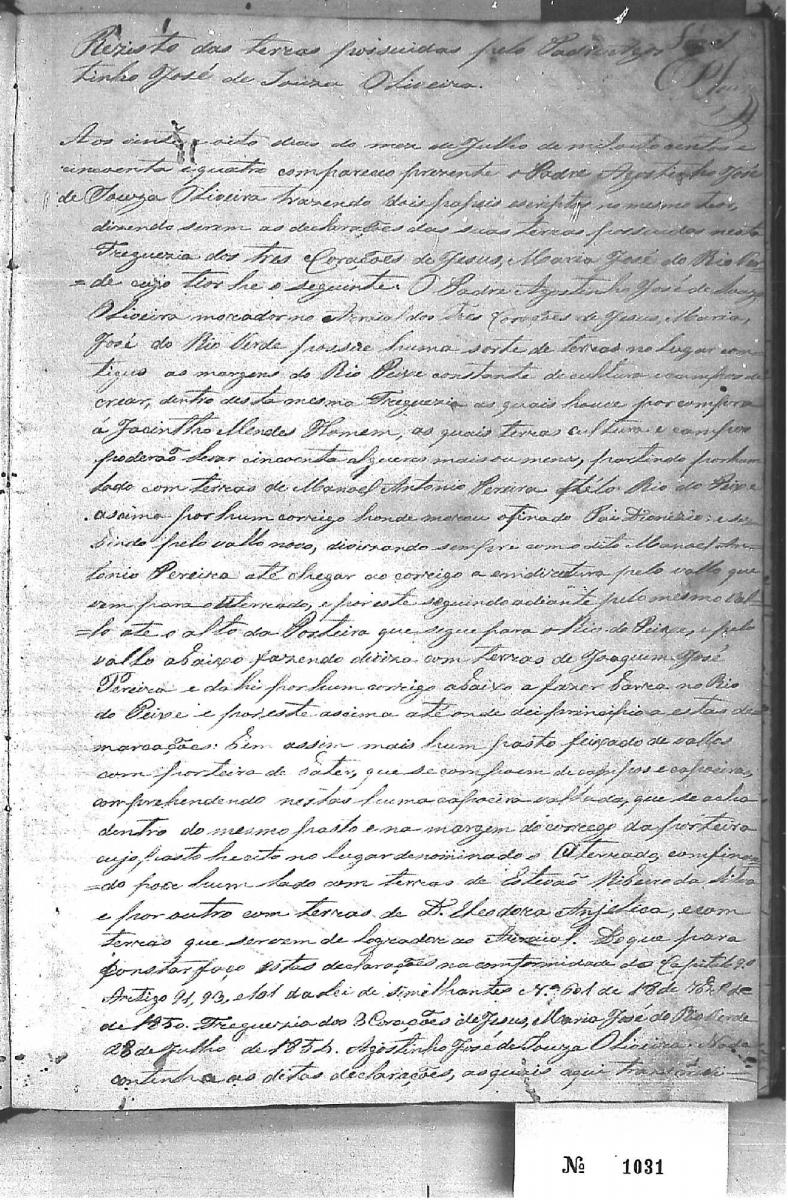 Rezisto das terras possuidas pelo Padre Agos
tinho José de Souza Oliveira.
Aos vinte e oito dias do mez de Julho de mil oito centos e
cincoenta e quatro compareceo prezente o Padre Agostinho José
de Souza Oliveira trazendo dois papeis escriptos no mesmo teor,
dizendo serem as declarações das suas terras possuidas nesta
Freguezia dos tres Corações de Jesus, Maria José do Rio Ver
=de cujo theor he o seguinte: O Padre Agostinho José de Souza
Oliveira morador no Arraial dos Trés Corações de Jesus, Maria,
José do Rio Verde possue huma sorte de terras no lugar con
tiguo as margens do Rio Peixe constante de cultura e campos de
crear, dentro desta mesma Freguezia as quais houve por compra
a Jacintho Mendes Homem, as quais terras cultura e campos
poderaõ levar cincoenta alqueres mais ou menos, partindo por hum
lado com terras de Manoel Antonio Pereira pelo Rio do Peixe
ascima por hum corrigo honde morou o finado Pai Dionizio: e su
bindo pelo vallo novo, divizando sempre com o dito Manoel An
tonio Pereira até chegar ao corrigo a em direitura pelo vallo que
vem para o Aterrado, e por este seguindo adiante pelo mesmo val
=lo até o alto da Porteira que segue para o Rio do Peixe, e pelo
vallo abaixo fazendo diviza com terras de Joaquim José
Pereira e dahi por hum corrigo abaixo a fazer barra no Rio
do Peixe e por este ascima até onde dei principio a estas de
marcações: Bem assim mais hum pasto feixado de vallos
com porteira de bater, que se compoem de campos e capoeira,
comprehendendo nestas huma capoeira vallada, que se acha
dentro do mesmo pasto e na margem do corrego da porteira
cujo pasto he cito no lugar denominado o Aterrado, confinan
=do por hum lado com terras de Estevaõ Ribeiro da Silva
e por outro com terras de D. Eleodora Anjelica, e com
terras que servem de logradore ao Arraial. Do que para
constar faço estas declarações na conformidade do Capitulo 9º
Artigo 91, 93, e 101 da Lei de similhantes Nº 601 de 18 de 7brº de
de 1850. Freguezia dos 3 Corações de Jesus, Maria José do Rio Verde
28 de Julho de 1854. Agostinho José de Souza Oliveira. Nada
continha as ditas declarações, as quais aqui transcrevi
Nº 1031